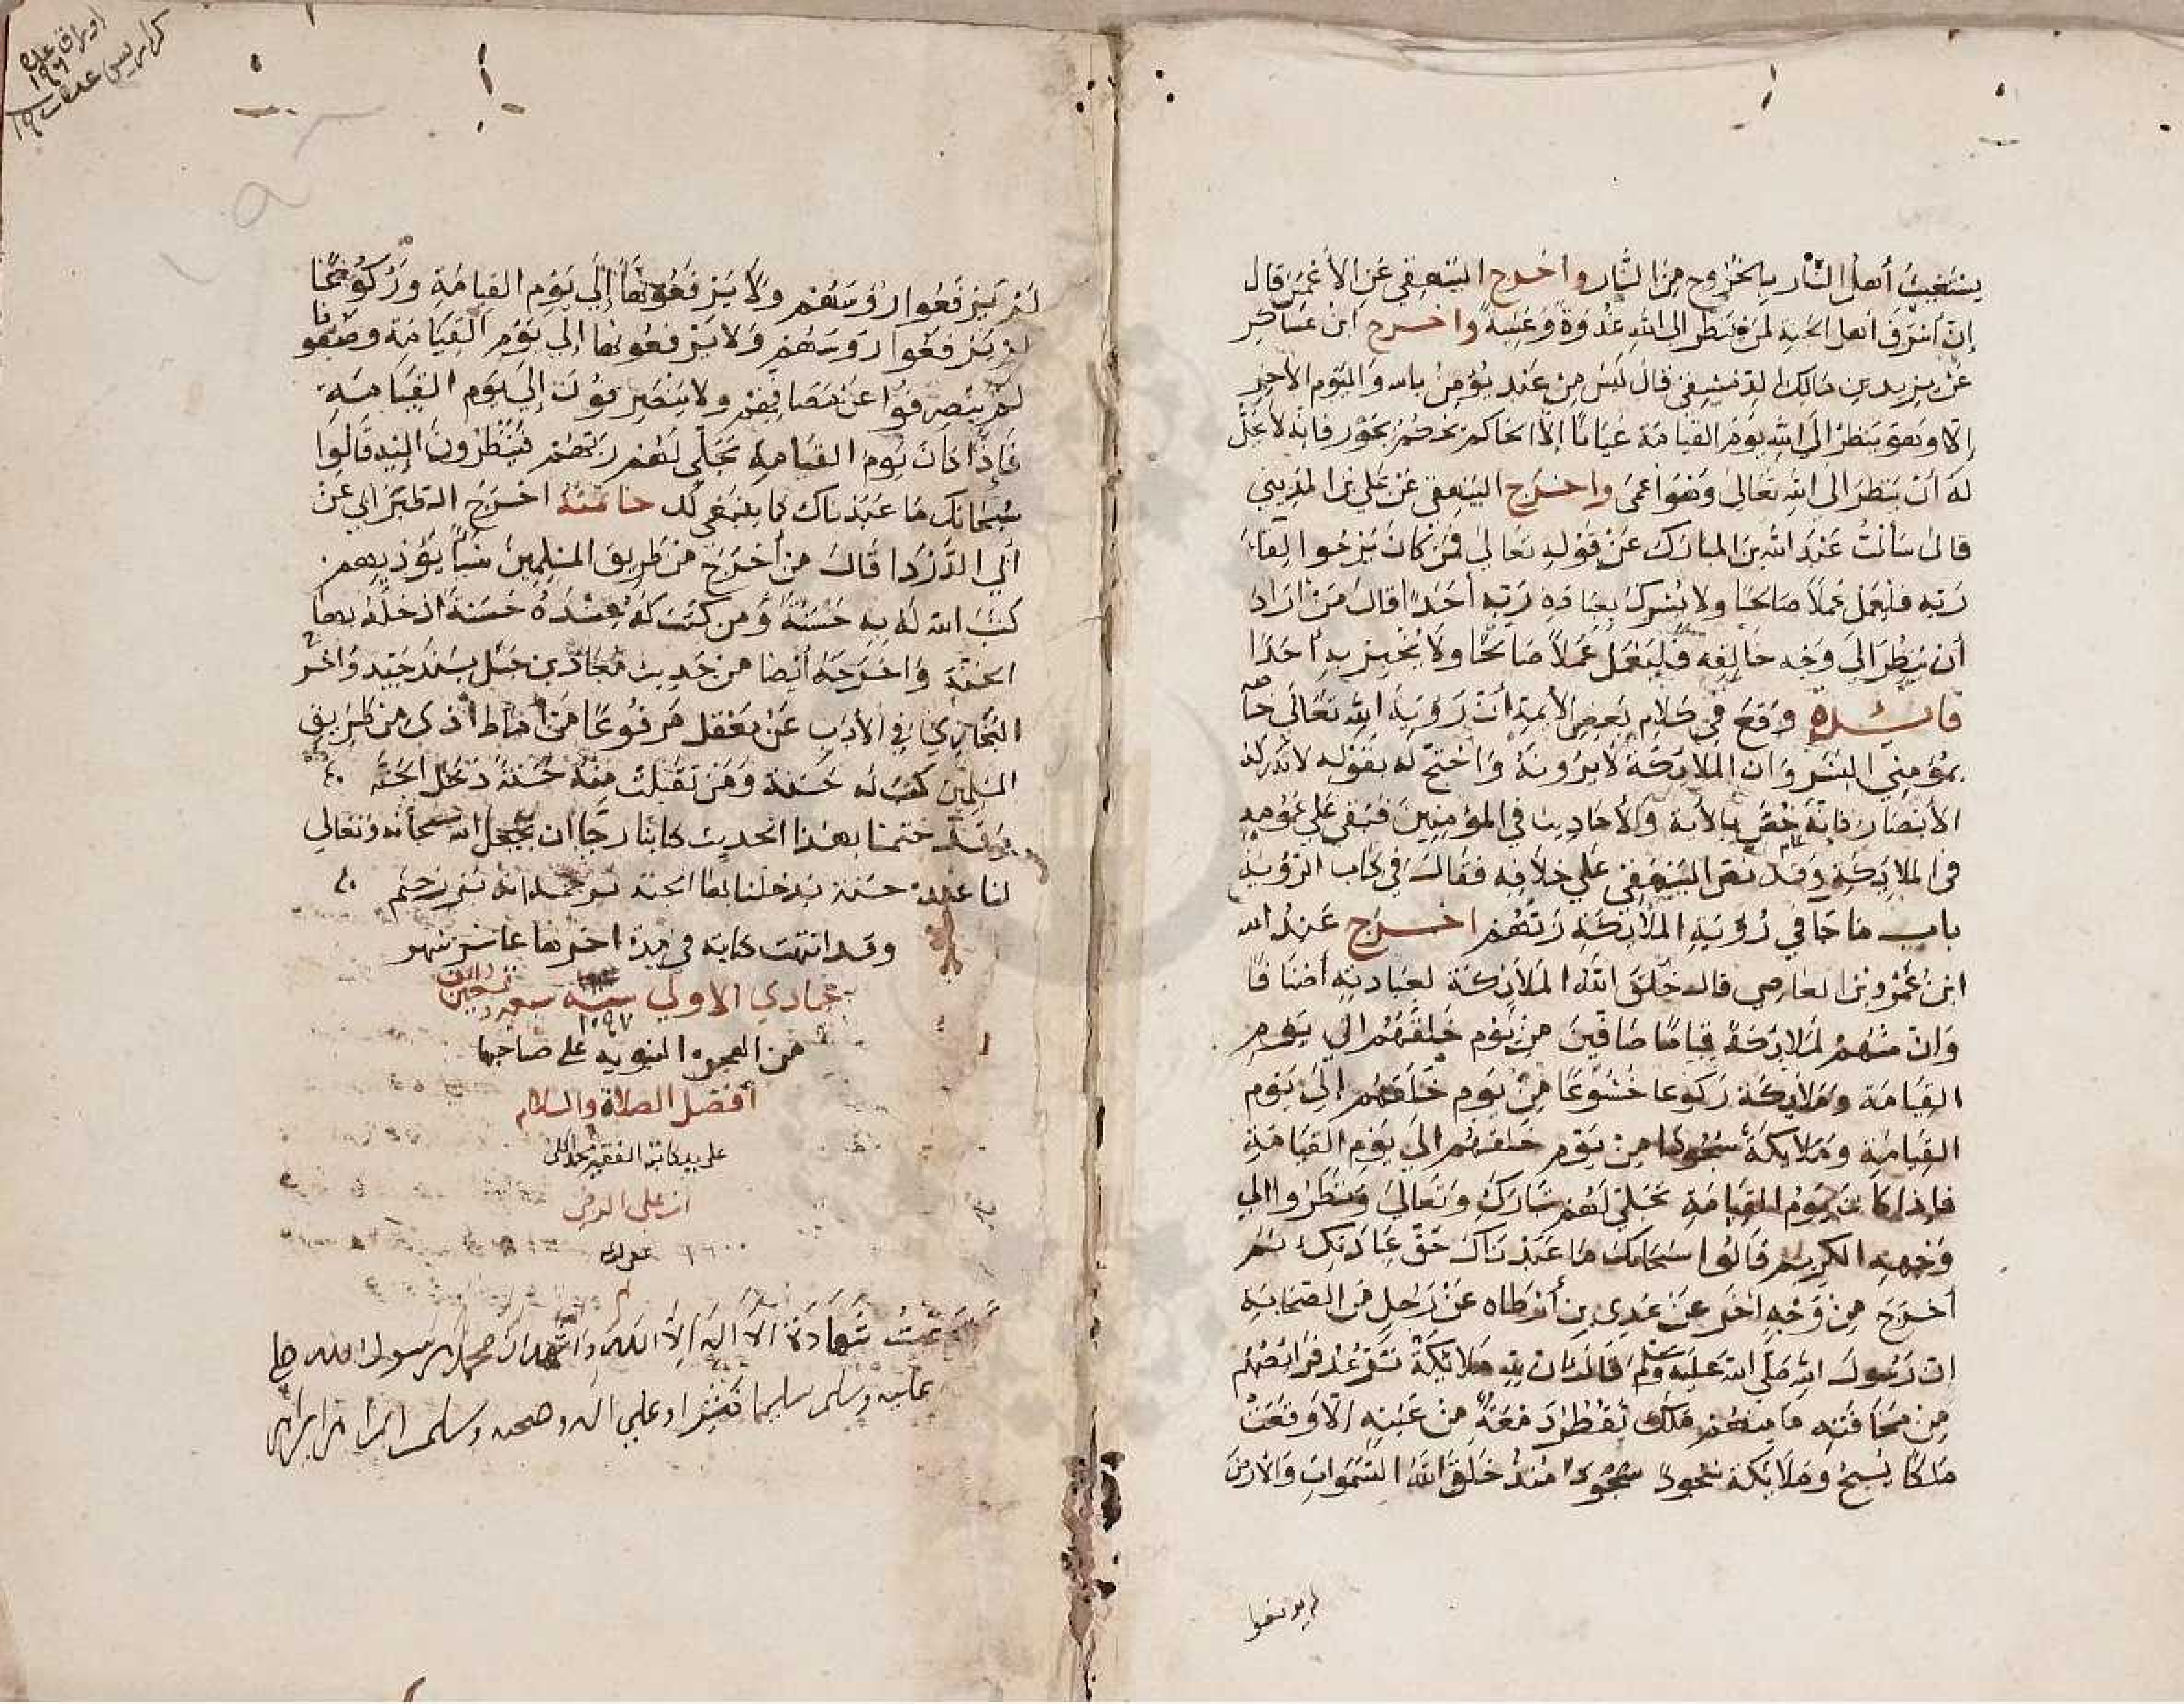 يستغيث أهل النار بالخروج من النار واخرج البيهقي عن الأعمش قال
إن أشرف أهل الجنة لمن ينظر الى الله غدوة وعشية واخرج ابن عساكر
عن يزيد بن مالك الدمشقي قال ليس من عبد يؤمن بالله واليوم الآخر
إلا وهو ينظر إلى الله يوم القيامة عيانا إلا الحاكم يحكم بجور فإنه لا يحل
له أن ينظر الى الله تعالى وهو أعمى واخرج البيهقي عن علي بن المديني
قال سألت عبد الله بن المبارك عن قوله تعالى فمن كان يرجوا لقاء
ربه فليعمل عملا صالحا ولا يشرك بعبادة ربه أحدا قال من اراد
أن ينظر الى وجه خالقه فليعمل عملا صالحا ولا يخبر به أحدا
فائدة وقع في كلام بعض الأيمة أن رؤية الله تعالى خاصة
بمؤمني البشر وان الملايكة لا يرونه واحتج له بقوله لا تدركه
الأبصار فانه عام خص بالآية والأحاديث في المؤمنين فبقي على عمومه
في الملايكة وقد نص البيهقي على خلافه فقال في كتاب الرؤية
باب ما جا في رؤية الملايكة ربهم اخرج عن عبد الله
ابن عمرو بن العاصي قال خلق الله الملايكة لعبادته أصنافا
وان منهم لملايكة قياما صافين من يوم خلقهم الى يوم
القيامة وملايكة ركوعا خشوعا من يوم خلقهم الى يوم
القيامة وملايكة سجودا من يوم خلقهم الى يوم القيامة
فاذا كان يوم القيامة تجلى لهم تبارك وتعالى وينظروا الى
وجهه الكريم قالوا سبحانك ما عبدناك حق عبادتك ثم
أخرج من وجه اخر عن عدي بن أرطاه عن رجل من الصحابة
ان رسول الله صلى الله عليه وسلم قال ان لله ملايكة ترعد فرائصهم
من مخافته ما منهم ملك تقطر دمعة من عينه الا وقعت
ملكا يسبح وملايكة سجودا منذ خلق الله السموات والأرض
لم يرفعوا
اوراق عدد
١٩٦
كراريس عدد ١٩
لم يرفعوا رؤسهم ولا يرفعونها إلى يوم القيامة وركوعا
لم يرفعوا رؤسهم ولا يرفعونها إلى يوم القيامة وصفوفا
لم ينصرفوا عن مصافهم ولا ينصرفون إلى يوم القيامة
فإذا كان يوم القيامة تجلى لهم ربهم فينظرون إليه قالوا
سبحانك ما عبدناك كما ينبغي لك خاتمة اخرج الطبراني عن
أبي الدردا قال من أخرج من طريق المسلمين شيأ يؤذيهم
كتب الله له به حسنة ومن كتب له عنده حسنة ادخله بها
الجنة واخرجه أيضا من حديث معاذ بن جبل بسند جيد واخرج
البخاري في الأدب عن معقل مرفوعا من أماط أذى من طريق
المسلمين كتب له حسنة ومن تقبلت منه حسنة دخل الجنة
وقد ختمنا بهذا الحديث كتابنا رجا ان يجعل الله سبحانه وتعالى
لنا عنده حسنة يدخلنا بها الجنة برحمته انه بر رحيم
وقد انتهت كتابته في مدة اخرها عاشر شهر
جمادي الاولي سنة سبع وتسعين والف
١٠٩٧
من الهجرة النبويه على صاحبها
أفضل الصلاة والسلام
على يد كاتبه الفقير محمد
ابن علي
شهادة الا اله الا الله وان محمد رسول الله صلى
عليه وسلم تسليما كثيرا وعلى اله وصحبه وسلم